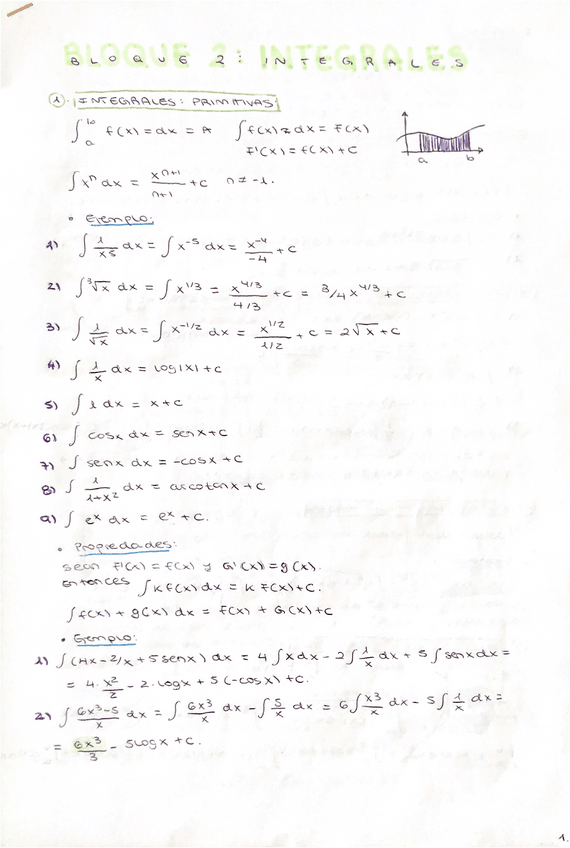 BLOQUE 2: INTEGRALES
1. INTEGRALES: PRIMITIVAS
∫ₐᵇ f(x)=dx = A ∫f(x)=dx = F(x)
F'(x)=f(x)+C
a b
∫xⁿ dx = xⁿ⁺¹/n+1 +C n≠-1.
• Ejemplo:
1) ∫ 1/x5 dx = ∫ x⁻⁵ dx = x⁻⁴/-4 +C
2) ∫ ³√x dx = ∫ x^1/3 = x^4/3/4/3 +C = 3/4 x^4/3 +C
3) ∫ 1/√x dx = ∫ x^-1/2 dx = x^1/2/1/2 +C = 2√x +C
4) ∫ 1/x dx = log|x|+C
5) ∫ 1 dx = x+C
6) ∫ cosx dx = senx+C
7) ∫ senx dx = -cosx +C
8) ∫ 1/1+x² dx = arcotanx+C
9) ∫ eˣ dx = eˣ +C.
• Propiedades:
sean F'(x)=f(x) y G'(x)=g(x).
Entonces ∫K f(x)dx = K F(x)+C.
∫f(x)+g(x) dx = F(x)+G(x)+C
• Ejemplo:
1) ∫(4x-2/x+5senx) dx = 4∫xdx - 2∫1/x dx + 5∫senxdx =
= 4·x²/2 - 2·logx + 5(-cosx) +C.
2) ∫ 6x³-5/x dx = ∫ 6x³/x dx - ∫5/x dx = 6∫x³/x dx - 5∫1/x dx =
= 6x³/3 - 5logx +C.
1.